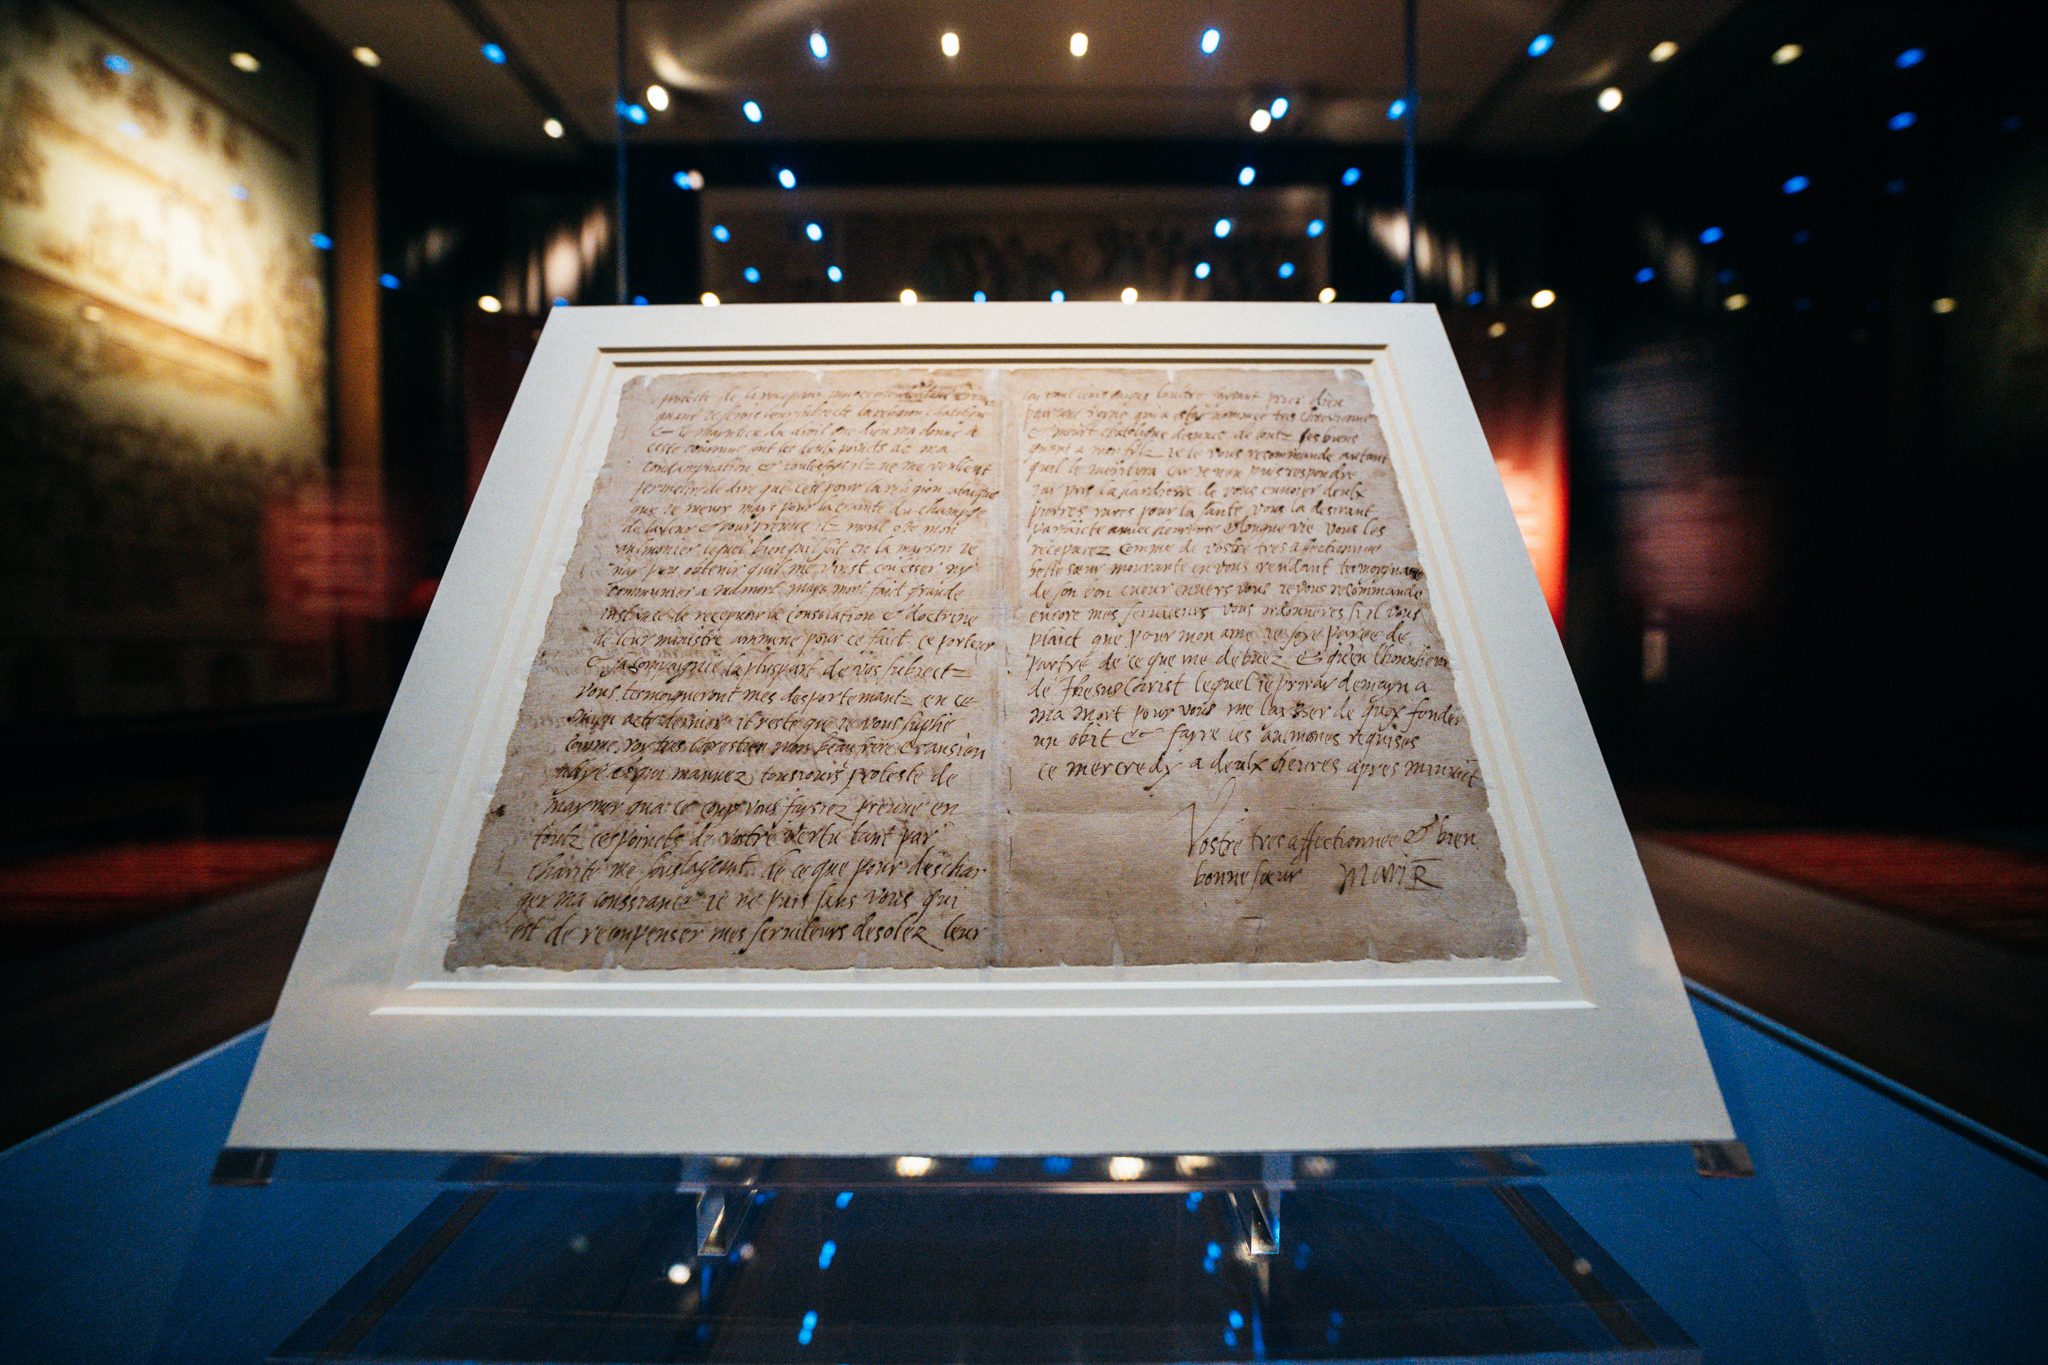 proteste de la recepvoir innocente
quant je serois leur subiecte la religion Catholique
& le mayntien du droit que dieu ma donné a
ceste couronne sont les deulx poincts de ma
condampnation & toutesfoys ilz ne me veullent
permettre de dire que cest pour la religion catolique
que je meurs mays pour la crainte du champge
de la leur & pour preuue ilz mont oste mon
aulmonier lequel bien quil soit en la mayson ie
nay peu obtenir quil me vinst confesser ny
communier a ma mort mays mont fait grande
instance de recepuoir la consolation & doctrine
de leur ministre ammene pour ce fait ce porteur
& sa compaignie la pluspart de vos subiectz
vous tesmoigneront mes desportemantz en ce
myen acte dernier il reste que ie vous suplie
comme roy tres Chrestien mon beau frere & ansien
allyé & qui mauuez tousiours proteste de
maymer qua ce coup vous faysiez preuue en
toutz ces poincts de vostre vertu tant par
charite me soulageant de ce que pour deschar
ger ma conssiance ie ne puis sans vous qui
est de recompenser mes seruiteurs desolez leur
layssant leurs gages laultre faysant prier dieu
pour une royne qui a estay nommee tres Chrestienne
& meurt catolique desnuee de toutz ses biens
quant a mon fylz ie le vous recommande autant
quil le meritera car ie nen puis respondre
Jay pris la hardiesse de vous enuoier deulx
pierres rares pour la sante vous la desirant
parfaicte auuec heurèuse & longue vie vous les
recepvrez comme de vostre tres affectionnee
belle sœur mourante en vous rendant tesmoygnage
de son bon cueur enuers vous ie vous recommande
encore mes seruiteurs vous ordonneres si il vous
plaict que pour mon ame ie soye payée de
partye de ce que me debuez & quen lhonneur
de Jhesus Christ lequel ie priray demayn a
ma mort pour vous me laysser de quoy fonder
un obit & fayre les aulmones requises
ce mercredy a deulx heures apres minuit
Vostre tres affectionnee & bien
bonne sœur Mari R